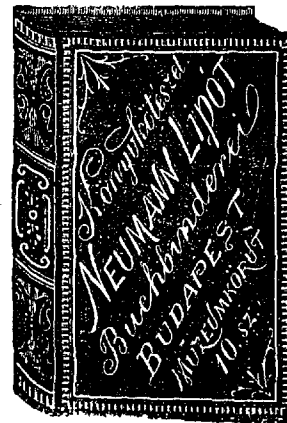 Könyvkötészet
NEUMANN LIPÓT
Buchbinderei
BUDAPEST
MÚZEUMKÖRÚT
10. sz.